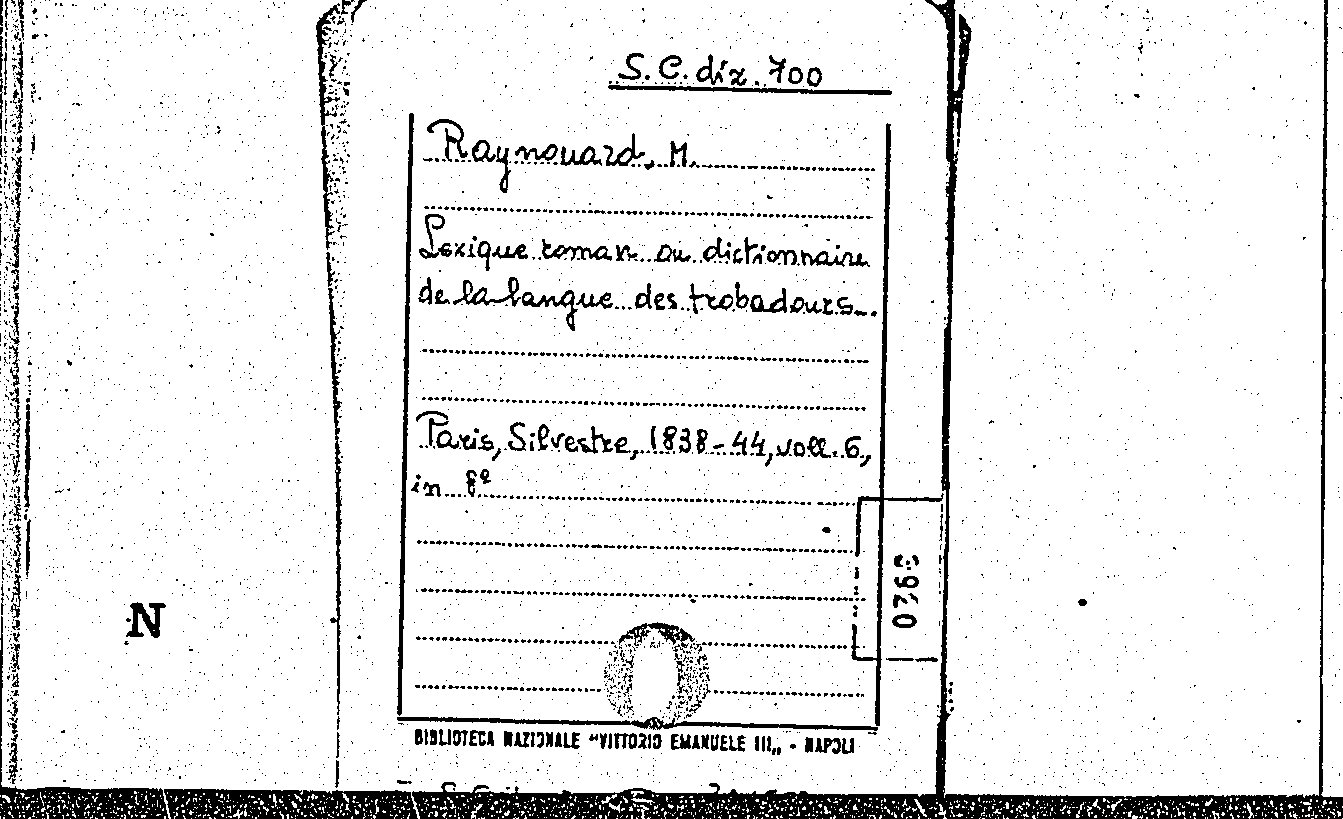 S.C. diz. 700
Raynouard, M.
Lexique roman ou dictionnaire
de la langue des trobadours...
Paris, Silvestre, 1838-44, voll. 6,
in 8º
0293
N
BIBLIOTECA NAZIONALE "VITTORIO EMANUELE III„ - NAPOLI